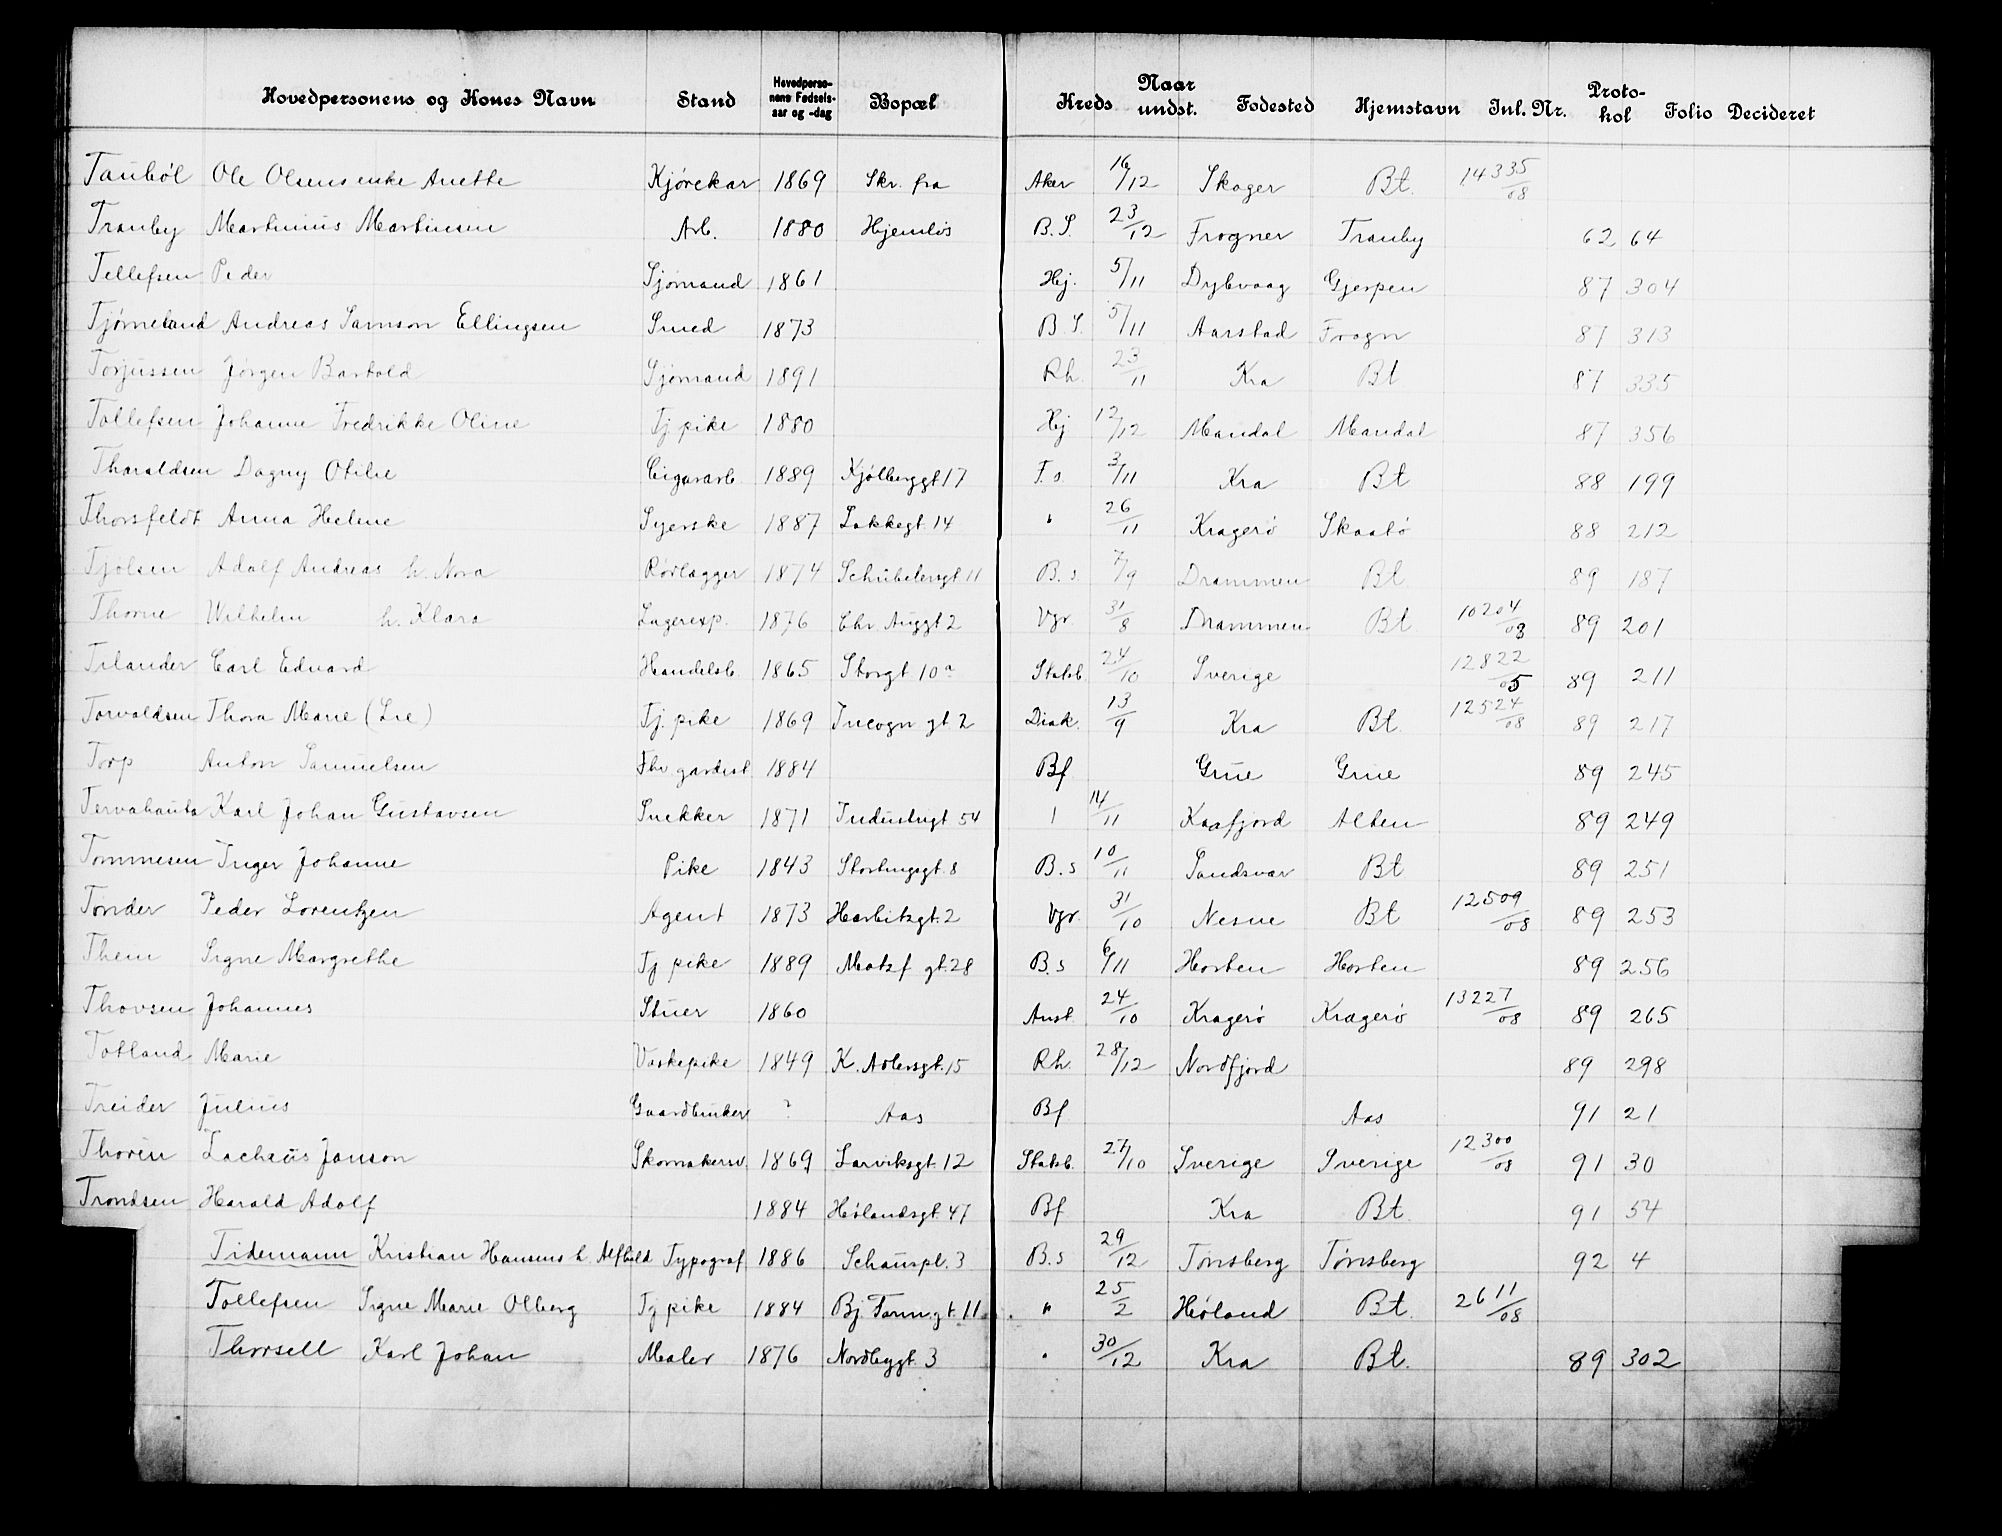 Hovedpersonens og Kones Navn Stand Hovedperso-nens Fødsels-aar og -dag Bopæl Kreds Naar undst. Fødested Hjemstavn Inl. Nr. Proto-kol Folio Decideret
Taubøl Ole Olsens enke Anette Kjørekar 1869 Skr. fra Aker 16/12 Skoger Bt. 14335/08
Tranby Martinius Martinsen Arb. 1880 Hjemløs B.S. 23/12 Frogner Tranby 62 64
Tellefsen Peder Sjømand 1861 Hj. 5/11 Dybvaag Gjerpen 87 304
Tjørneland Andreas Samson Ellingsen Smed 1873 B.S. 5/11 Aarstad Frogn 87 313
Torjussen Jørgen Bartold Sjømand 1891 Rh. 23/11 Kra Bt 87 335
Tollefsen Johanne Fredrikke Oline Tj pike 1880 Hj 12/12 Mandal Mandal 87 356
Tharaldsen Dagny Otilie Cigararb. 1889 Kjølberggt 17 F.s. 3/11 Kra Bt 88 199
Thorsfeldt Anna Helene Syerske 1887 Lakkegt. 14 " 26/11 Kragerø Skaatø 88 212
Tjølsen Adolf Andreas h. Nora Rørlægger 1874 Schübelersgt 11 B.s. 7/9 Drammen Bt. 89 187
Thorne Wilhelm h. Klara Lagerexp. 1876 Chr. Auggt 2 Vgr. 31/8 Drammen Bt. 10204/08 89 201
Tilander Carl Edvard Handelsb. 1865 Storgt. 10a Statsb. 24/10 Sverige 12822/05 89 211
Torvaldsen Thora Marie (Lie) Tj. pike 1869 Incogn gt. 2 Diak. 13/9 Kra Bt. 12524/08 89 217
Torp Anton Samuelsen Fhv gardist 1884 Bf Grue Grue 89 245
Tervahauta Karl Johan Gustavsen Snekker 1871 Industrigt 54 1 14/11 Kaafjord Alten 89 249
Tommesen Inger Johanne Pike 1843 Stortingsgt. 8 B.s 10/11 Sandsvær Bt 89 251
Tønder Peder Lorentzen Agent 1873 Harbitzgt. 2 Vgr. 31/10 Nesne Bt 12509/08 89 253
Them Signe Margrethe Tj pike 1889 Motzf gt. 28 B.s 6/11 Horten Horten 89 256
Thovsen Johannes Stuer 1860 Anst. 24/10 Kragerø Kragerø 13227/08 89 265
Totland Marie Vaskepike 1849 K. Adlersgt. 15 Rh. 28/12 Nordfjord 89 298
Treider Julius Gaardbruker ? Aas Bf Aas 91 21
Thorén Zachæus Janson Skomakersv. 1869 Larviksgt. 12 Statsb. 27/10 Sverige Sverige 12300/08 91 30
Trondsen Harald Adolf 1884 Hølandsgt. 47 Bf Kra Bt. 91 54
Tidemann Kristian Hansens h. Alfhild Typograf 1886 Schauspl. 3 B.s 29/12 Tønsberg Tønsberg 92 4
Tollefsen Signe Marie Olberg Tj pike 1884 Bj. Farm.gt. 11 " 25/2 Høland Bt. 2611/08
Thorsell Karl Johan Maler 1876 Nordbygt. 3 " 30/12 Kra Bt. 89 302